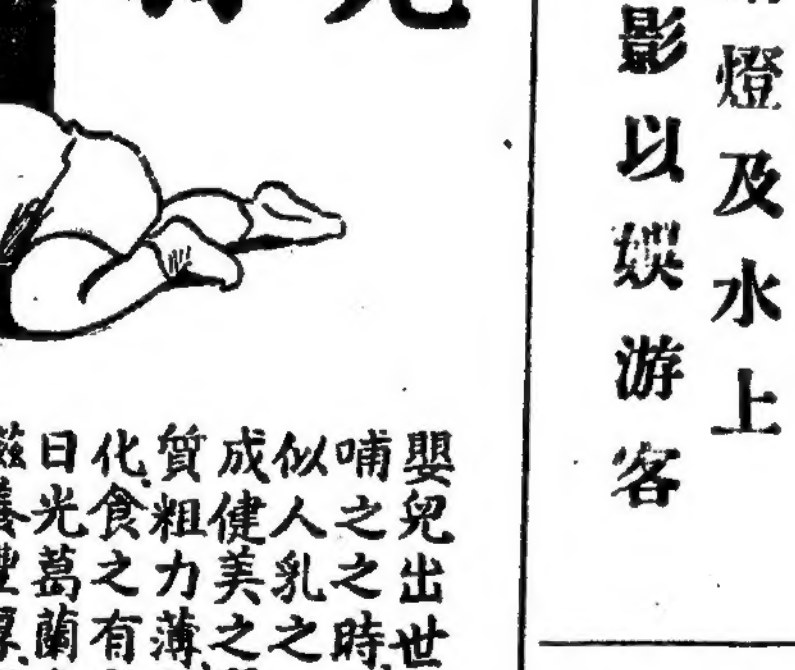 燈及水上
影以娛游客
嬰兒出世
哺之之時
似人乳之
成健美之
質粗力薄
化食之有
日光葛蘭